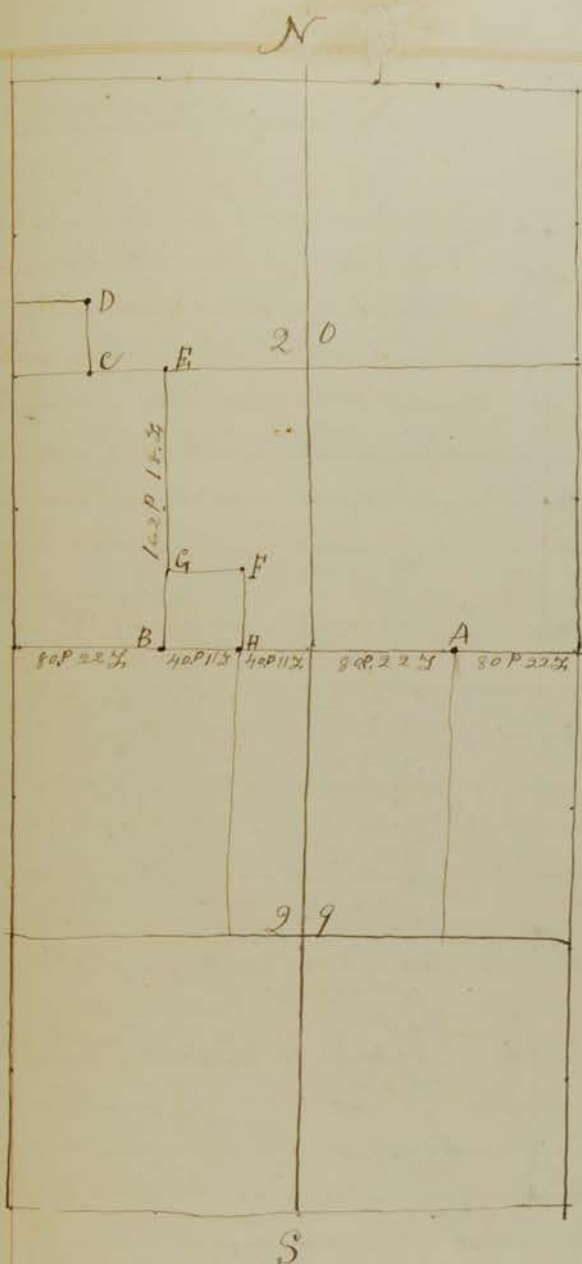 N
D
2 0
C
E
G
F
B
H
A
80P 22L
40P 11L
40P 11L
80P. 22L
80P 22L
2 9
S